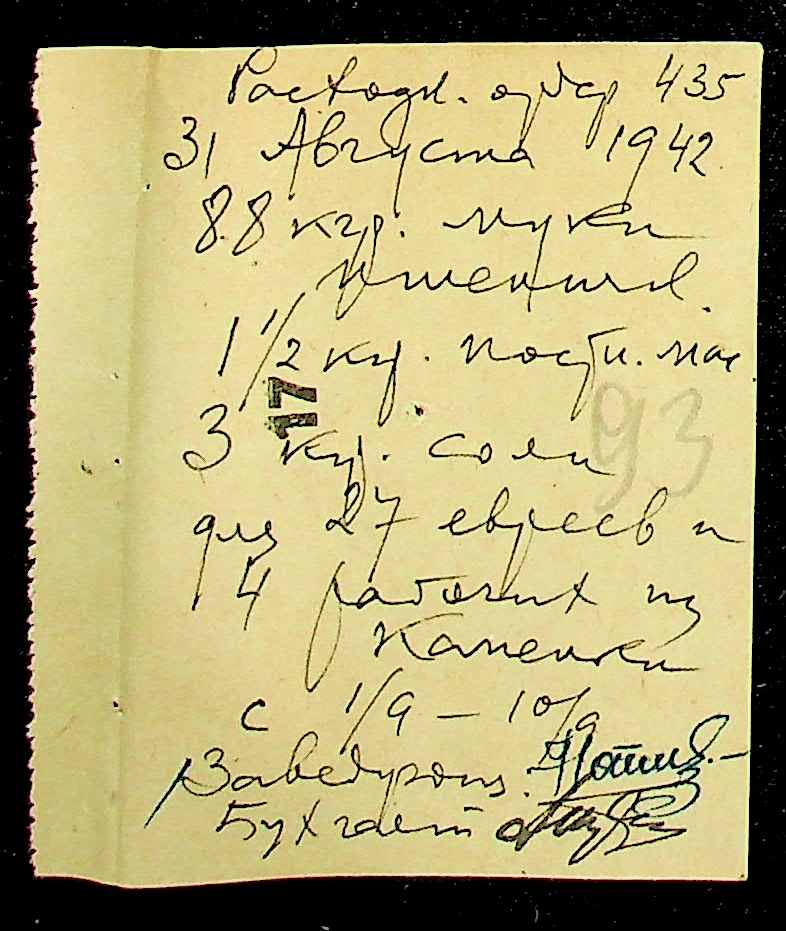 Расходн. ордер 435
31 Августа 1942
8.8 кгр. муки
пшеничн.
1 1/2 кгр. постн. мас.
17
3 кгр. соли
93
для 27 евреев и
14 рабочих из
Каменки
с 1/9 – 10/9
Заведующ.
Бухгалт